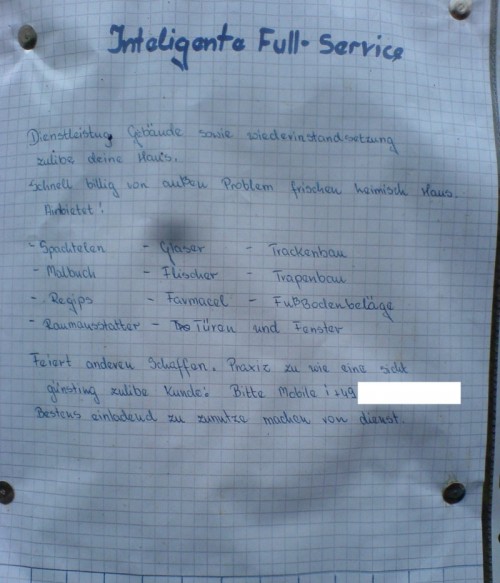 Inteligente Full-Service
Dienstleistug Gebäude sowie wiederinstandsetzung
zulibe deine Haus.
Schnell billig von außen Problem frischen heimisch Haus.
Anbietet!
- Spachtelen - Glaser - Trackenbau
- Malbuch - Flischer - Trapenbau
- Regips - Farmacel - Fußbodenbeläge
- Raumausstatter - Türan und Fenster
Feiert anderen Schaffen. Praxis zu wie eine sicht
günsting zulibe Kunde: Bitte Mobile : +49
Bestens einladend zu zunutze machen von dienst.